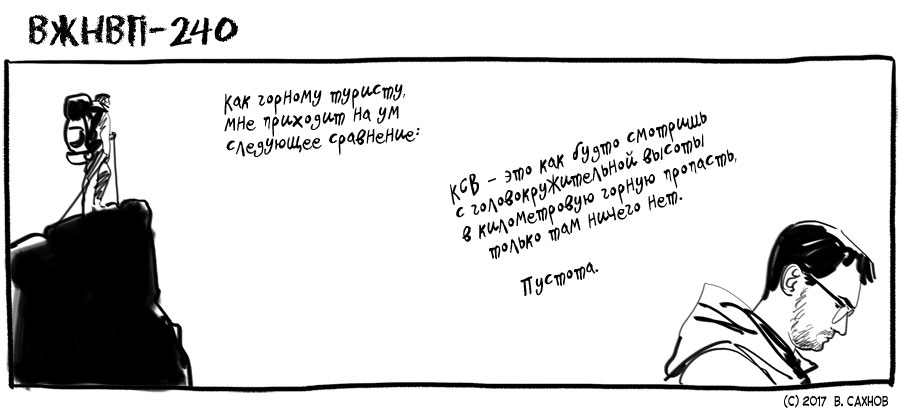 ВЖНВП-240
Как горному туристу,
мне приходит на ум
следующее сравнение:
КСВ - это как будто смотришь
с головокружительной высоты
в километровую горную пропасть,
только там ничего нет.
Пустота.
(C) 2017 В. САХНОВ